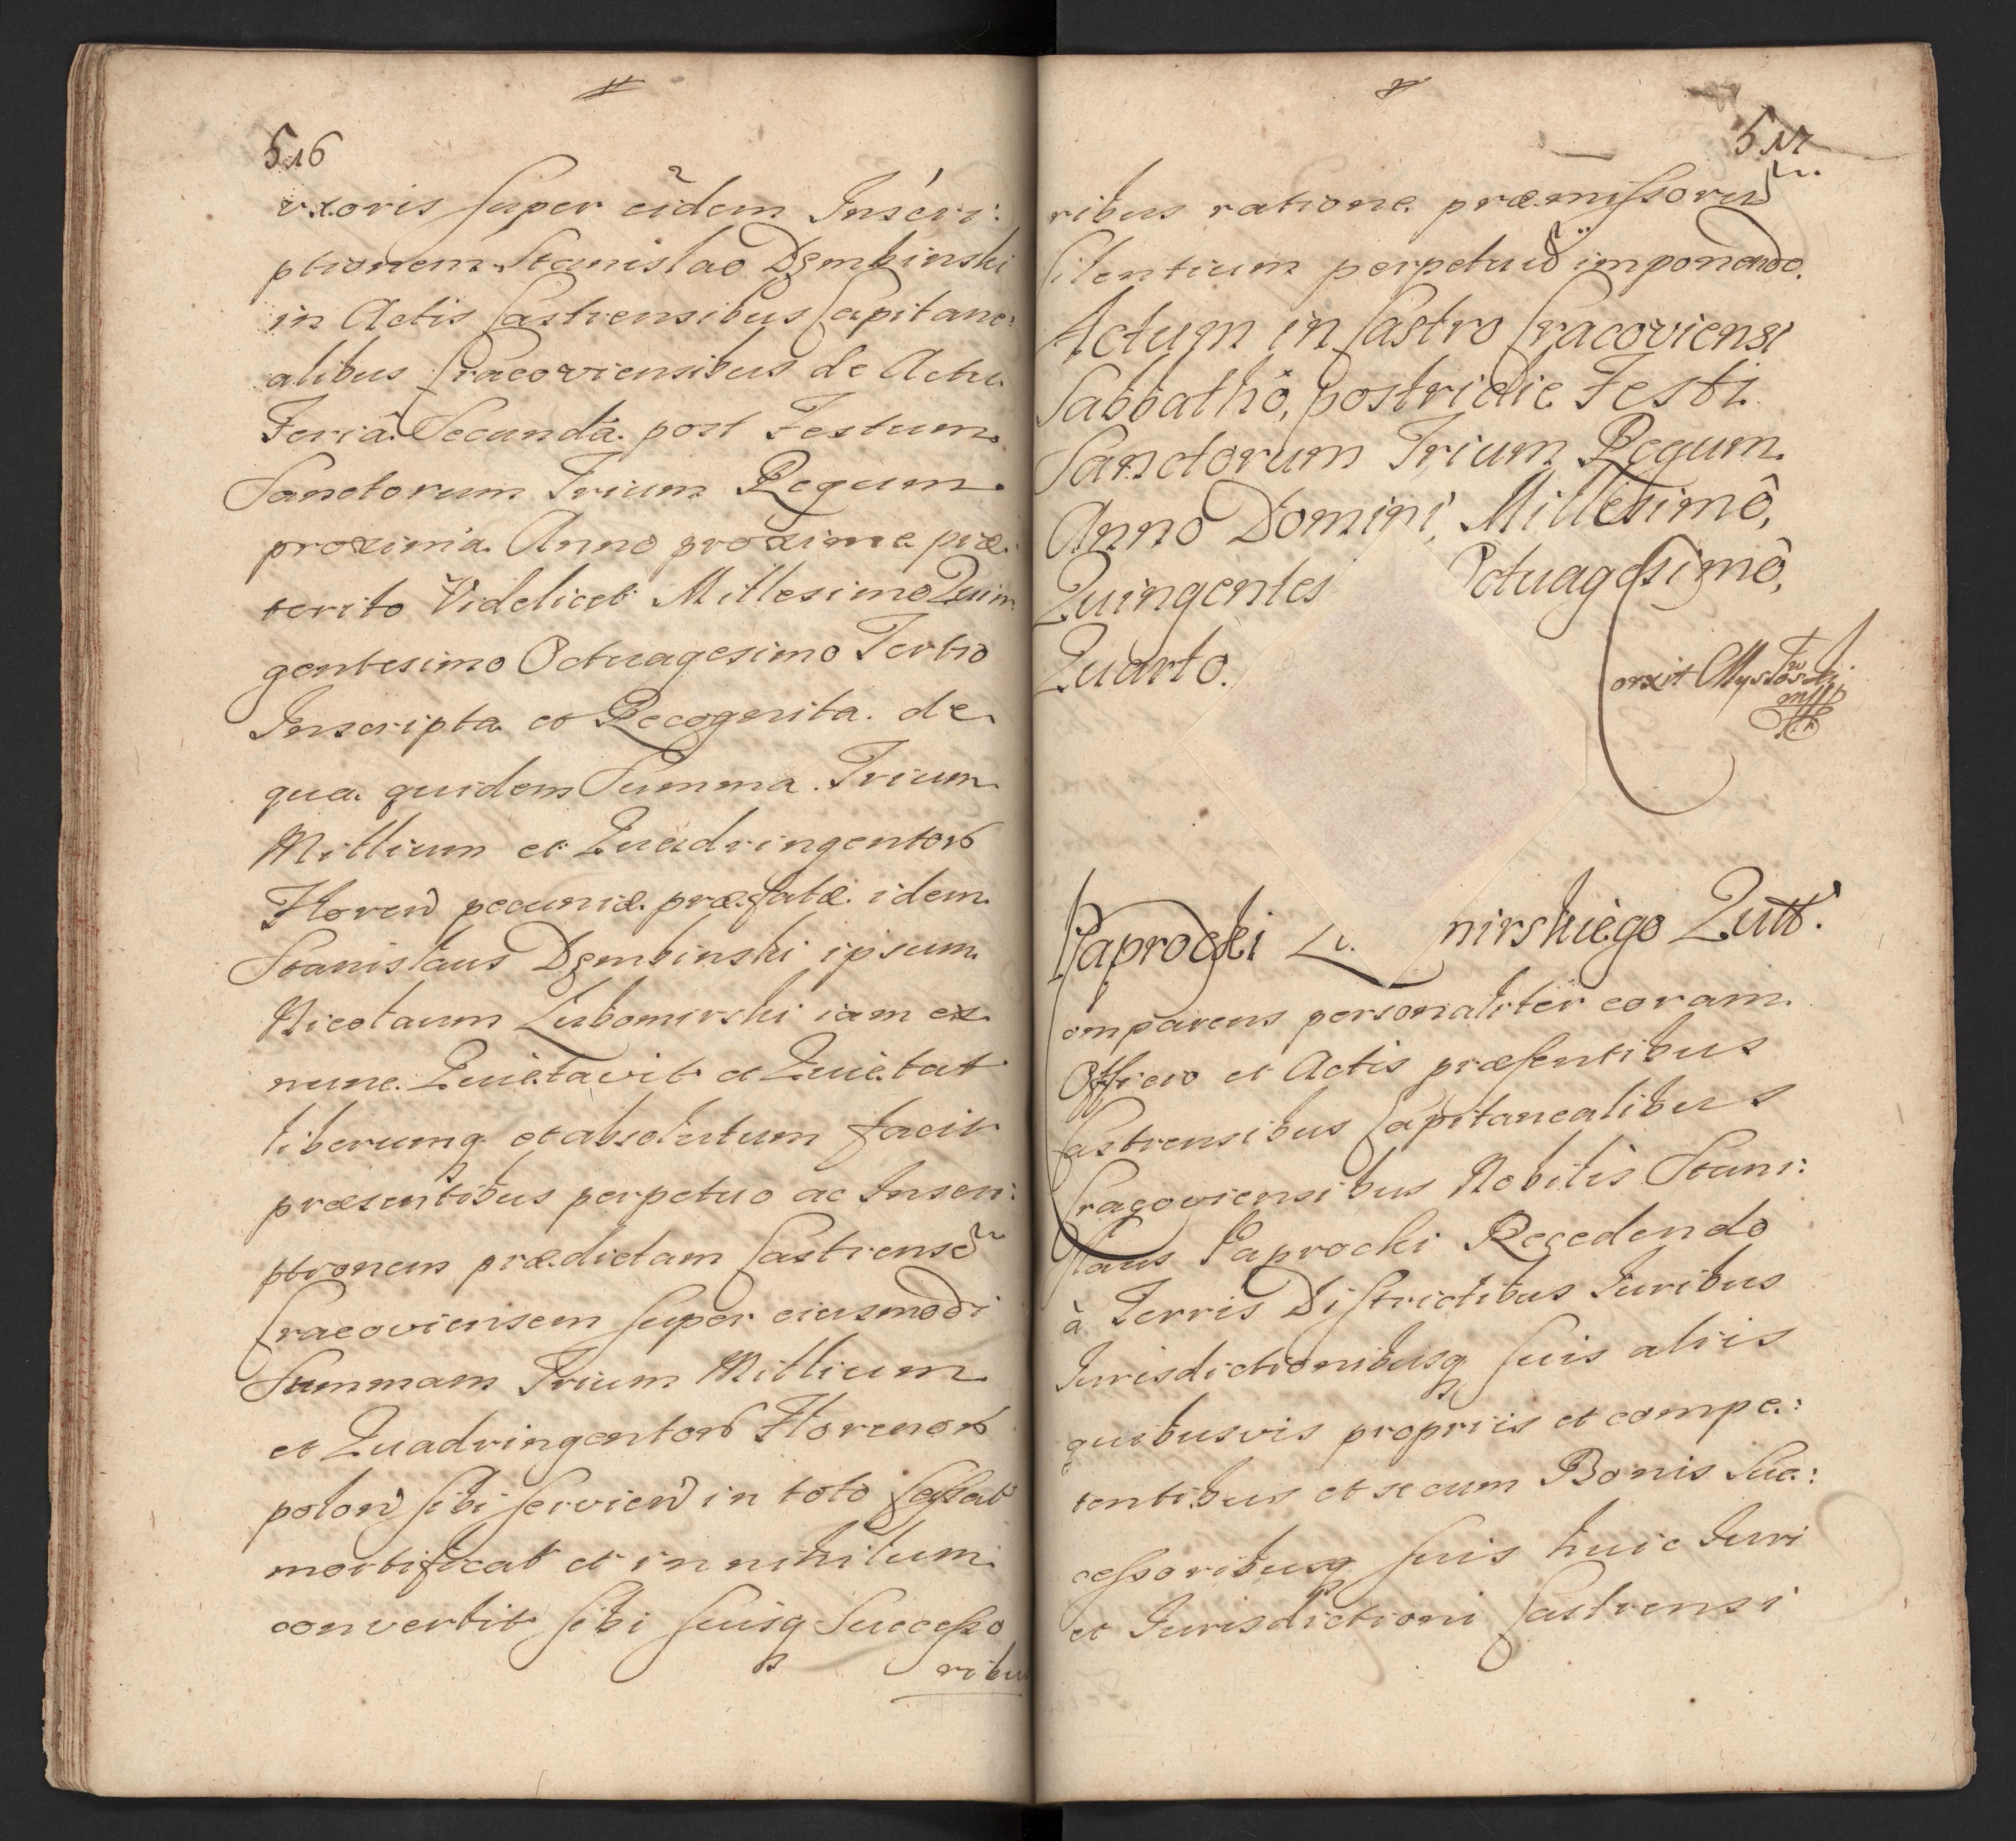 516
uxoris super eidem Inscri:
ptionem Stanislao Dembinski
in Actis Castrensibus Capitane:
alibus Cracoviensibus de Actu
Feriâ Secundâ post Festum
Sanctorum Trium Regum
proximâ Anno proxime præ:
terito Videlicet Millesimo Quin
gentesimo Octuagesimo Tertio
Inscripta et Recognita de
qua quidem Summa Trium
Millium et Quadringentor
Floren pecuniæ præfatæ idem
Stanislaus Dembinski ipsum
Nicolaum Lubomirski iam ex
nunc Quietavit et Quietat
liberumq et absolutum facit
præsentibus perpetuo ac Inscri:
ptionem prædictam Castrensē
Cracoviensem super eiusmodi
Summam Trium Millium
et Quadringentor Florenor
polon sibi servien in toto cassat
mortificat et in nihilum
convertit sibi suisq Successo
ribus
517
ribus ratione præmissorū
silentium perpetuū imponendo.
Actum in Castro Cracoviensi
Sabbathô, postridie Festi
Sanctorum Trium Regum
Anno Domini, Millesimô,
Quingentes Octuagesimô,
Quarto.
Paprocki Lu nirskiego Quitt.
Comparens personaliter coram
Officio et Actis præsentibus
Castrensibus Capitanealibus
Cracoviensibus Nobilis Stani:
slaus Paprocki Recedendo
à Terris Districtibus Juribus
Jurisdictionibusq suis aliis
quibusvis propriis et compe:
tentibus et se cum Bonis Suc:
cessoribusq suis huic Juri
et Jurisdictioni Castrensi